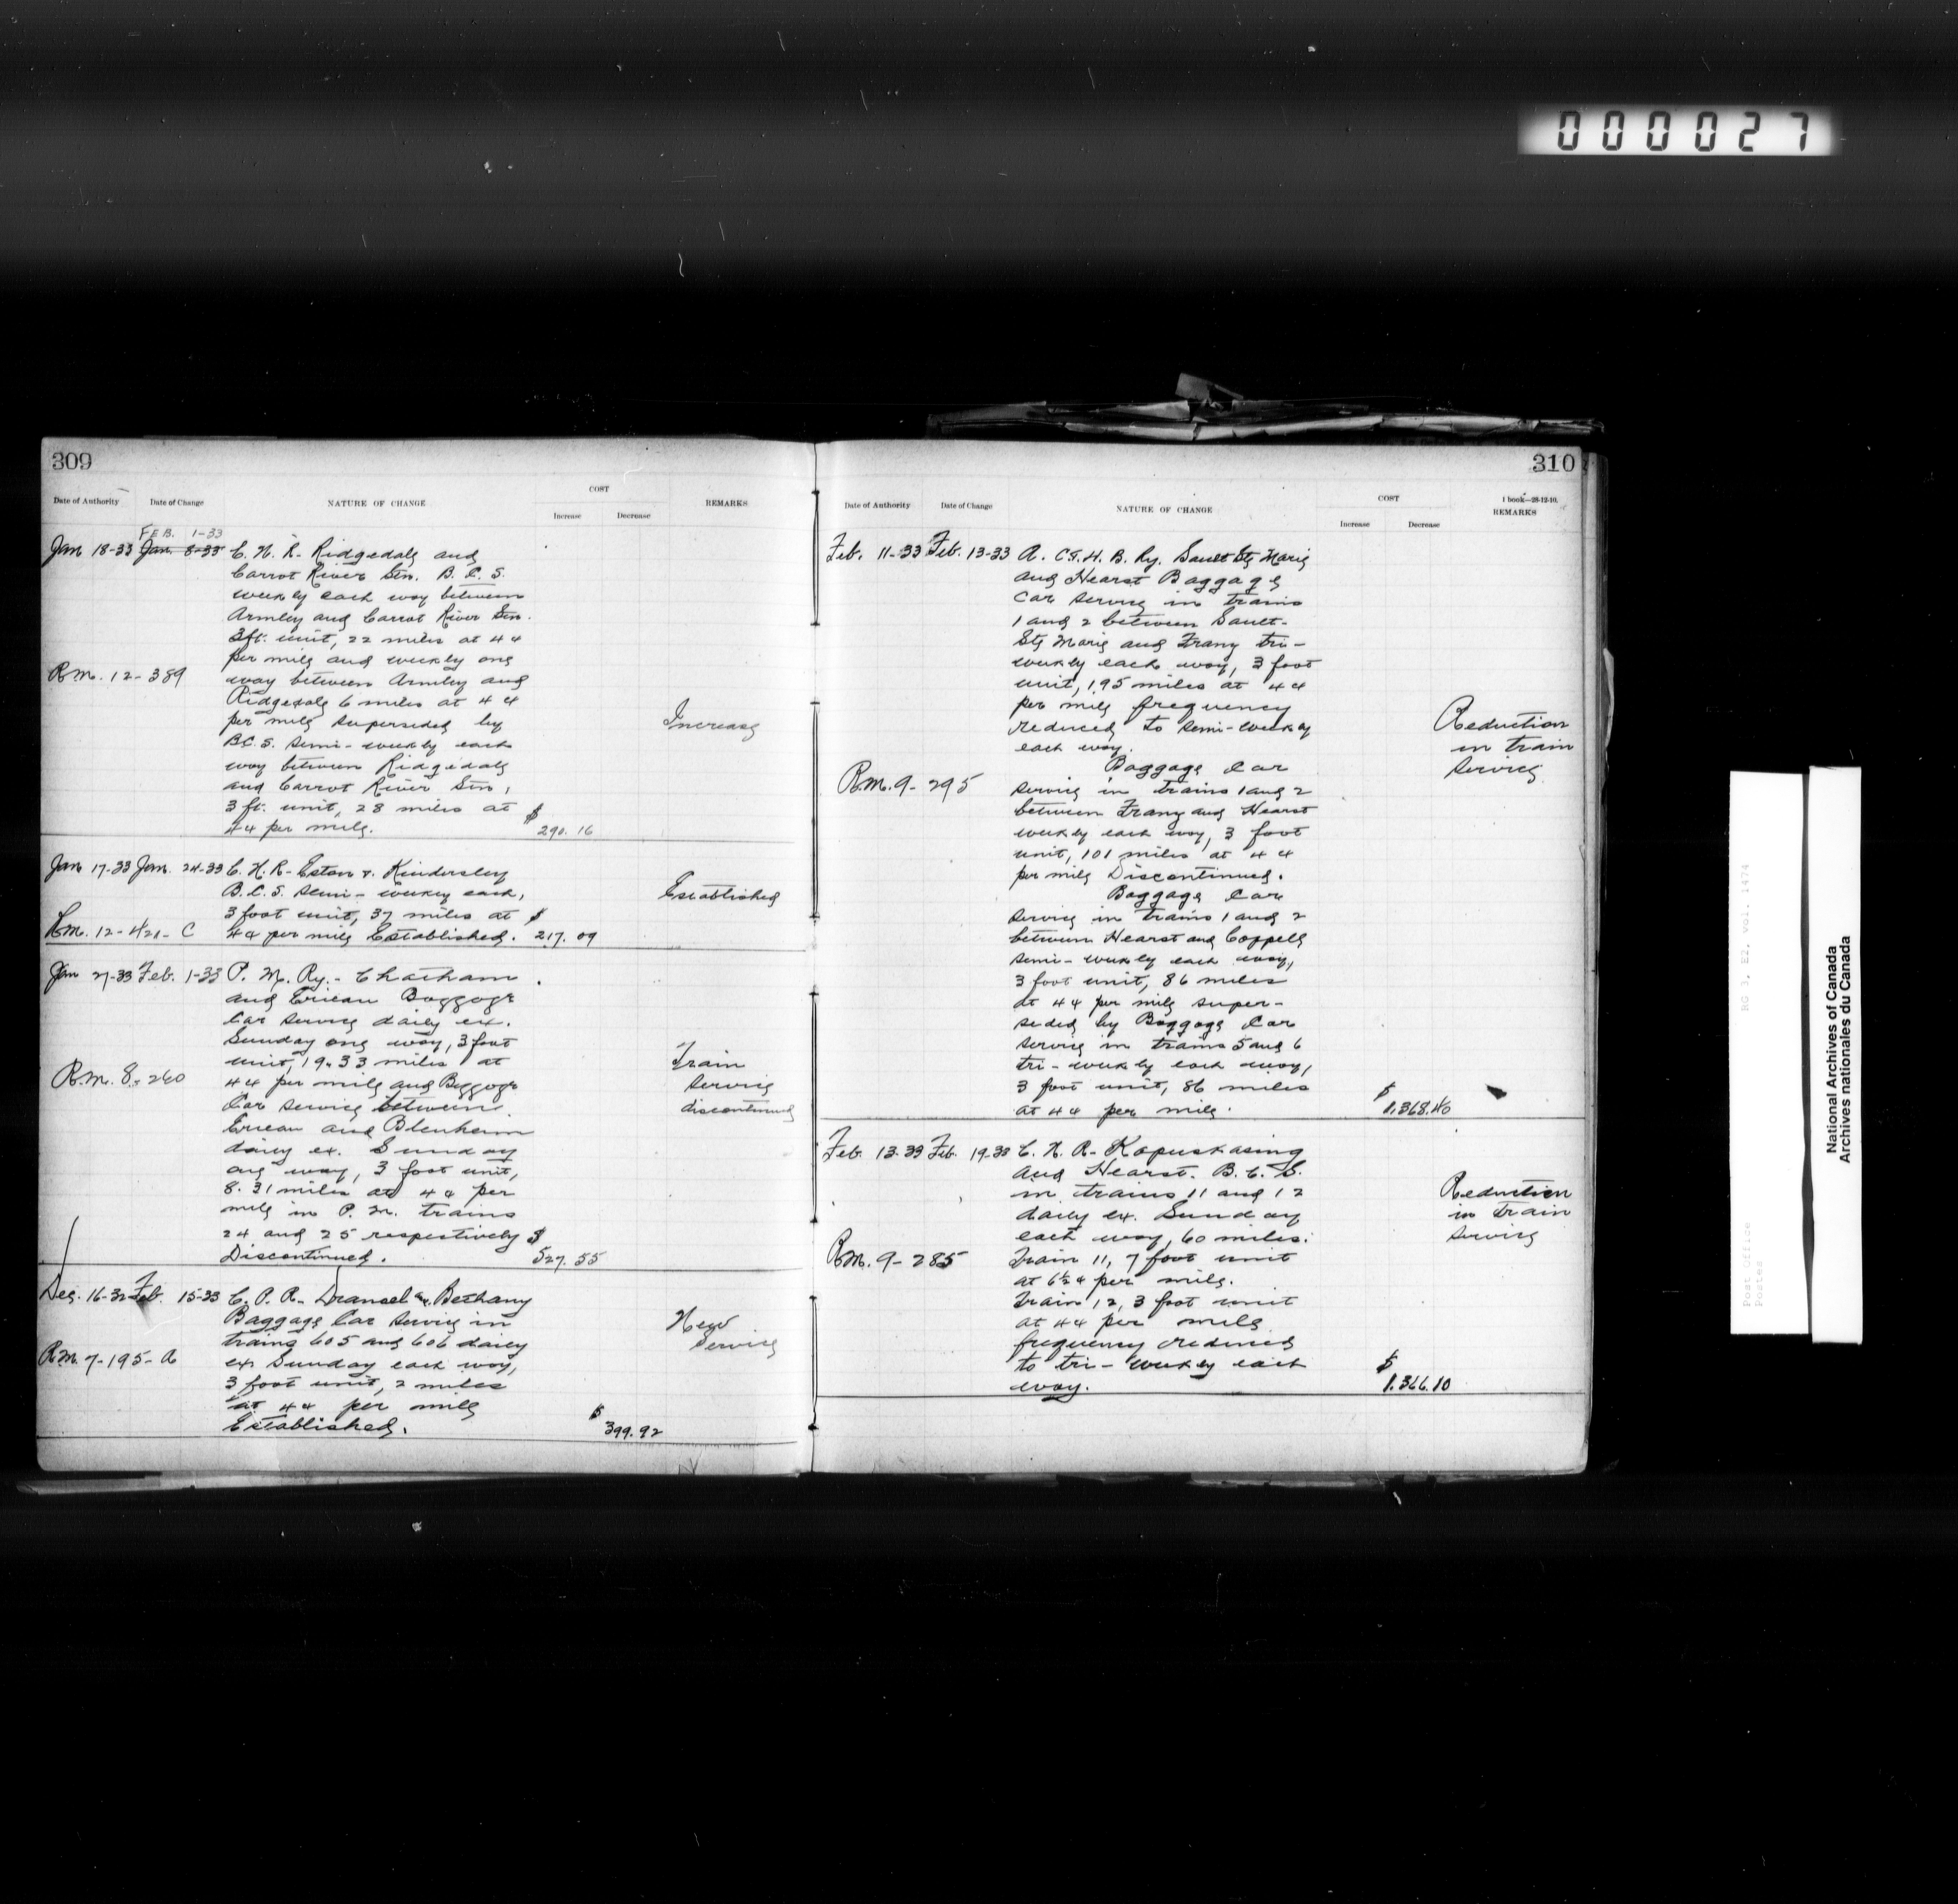 000027
309
Date of Authority
Date of Change
NATURE OF CHANGE
COST
Increase
Decrease
REMARKS
FEB. 1-33
Jan 18-33 Jan. 8-33 C. N. R. Ridgedale and
Carrot River Stn. B. C. S.
weekly each way between
Armley and Carrot River Stn.
3ft. unit, 22 miles at 4¢
per mile and weekly one
R.M. 12-389
way between Armley and
Ridgedale 6 miles at 4¢
per mile superseded by
Increase
B.C.S. semi-weekly each
way between Ridgedale
and Carrot River Stn,
3 ft. unit, 28 miles at $
4¢ per mile. 290.16
Jan 17-33 Jan. 24-33 C. N. R- Eston & Kindersley
B.C.S. semi-weekly each,
Established
3 foot unit, 37 miles at $
R.M. 12-421-C 4¢ per mile Established. 217.09
Jan 27-33 Feb. 1-33 P. M. Ry.- Chatham
and Erieau Baggage
Car service daily ex.
Sunday one way, 3 foot
unit, 19.33 miles at
Train
R.M. 8-260 4¢ per mile and Baggage
service
Car service between
discontinued
Erieau and Blenheim
daily ex. Sunday
one way, 3 foot unit,
8.31 miles at 4¢ per
mile in P. M. trains
24 and 25 respectively $
Discontinued. 527.55
Dec. 16-32 Feb. 15-33 C. P. R- Dransel & Bethany
Baggage Car service in
New
trains 605 and 606 daily
service
R.M. 7-195-A ex Sunday each way,
3 foot unit, 2 miles
at 4¢ per mile $
Established. 399.92
310
Date of Authority
Date of Change
NATURE OF CHANGE
COST
Increase
Decrease
1 book—28-12-10.
REMARKS
Feb. 11-33 Feb. 13-33 A. C. & H. B. Ry. Sault Ste Marie
and Hearst Baggage
Car service in trains
1 and 2 between Sault-
Ste Marie and Franz tri-
weekly each way, 3 foot
unit, 195 miles at 4¢
per mile frequency
Reduction
reduced to semi-weekly
in train
each way.
service
Baggage Car
R.M. 9-295 service in trains 1 and 2
between Franz and Hearst
weekly each way, 3 foot
unit, 101 miles at 4¢
per mile Discontinued.
Baggage Car
service in trains 1 and 2
between Hearst and Coppell
semi-weekly each way,
3 foot unit, 86 miles
at 4¢ per mile super-
seded by Baggage Car
service in trains 5 and 6
tri-weekly each way,
3 foot unit, 86 miles $
at 4¢ per mile. 1,368.40
Feb. 13-33 Feb. 19-33 C. N. R- Kapuskasing
and Hearst. B. C. S.
in trains 11 and 12
Reduction
daily ex. Sunday
in train
each way, 60 miles.
service
R.M. 9-285 Train 11, 7 foot unit
at 6½¢ per mile.
Train 12, 3 foot unit
at 4¢ per mile
frequency reduced
to tri-weekly each $
way. 1,366.10
RG 3, E2, vol. 1474
Post Office
Postes
National Archives of Canada
Archives nationales du Canada